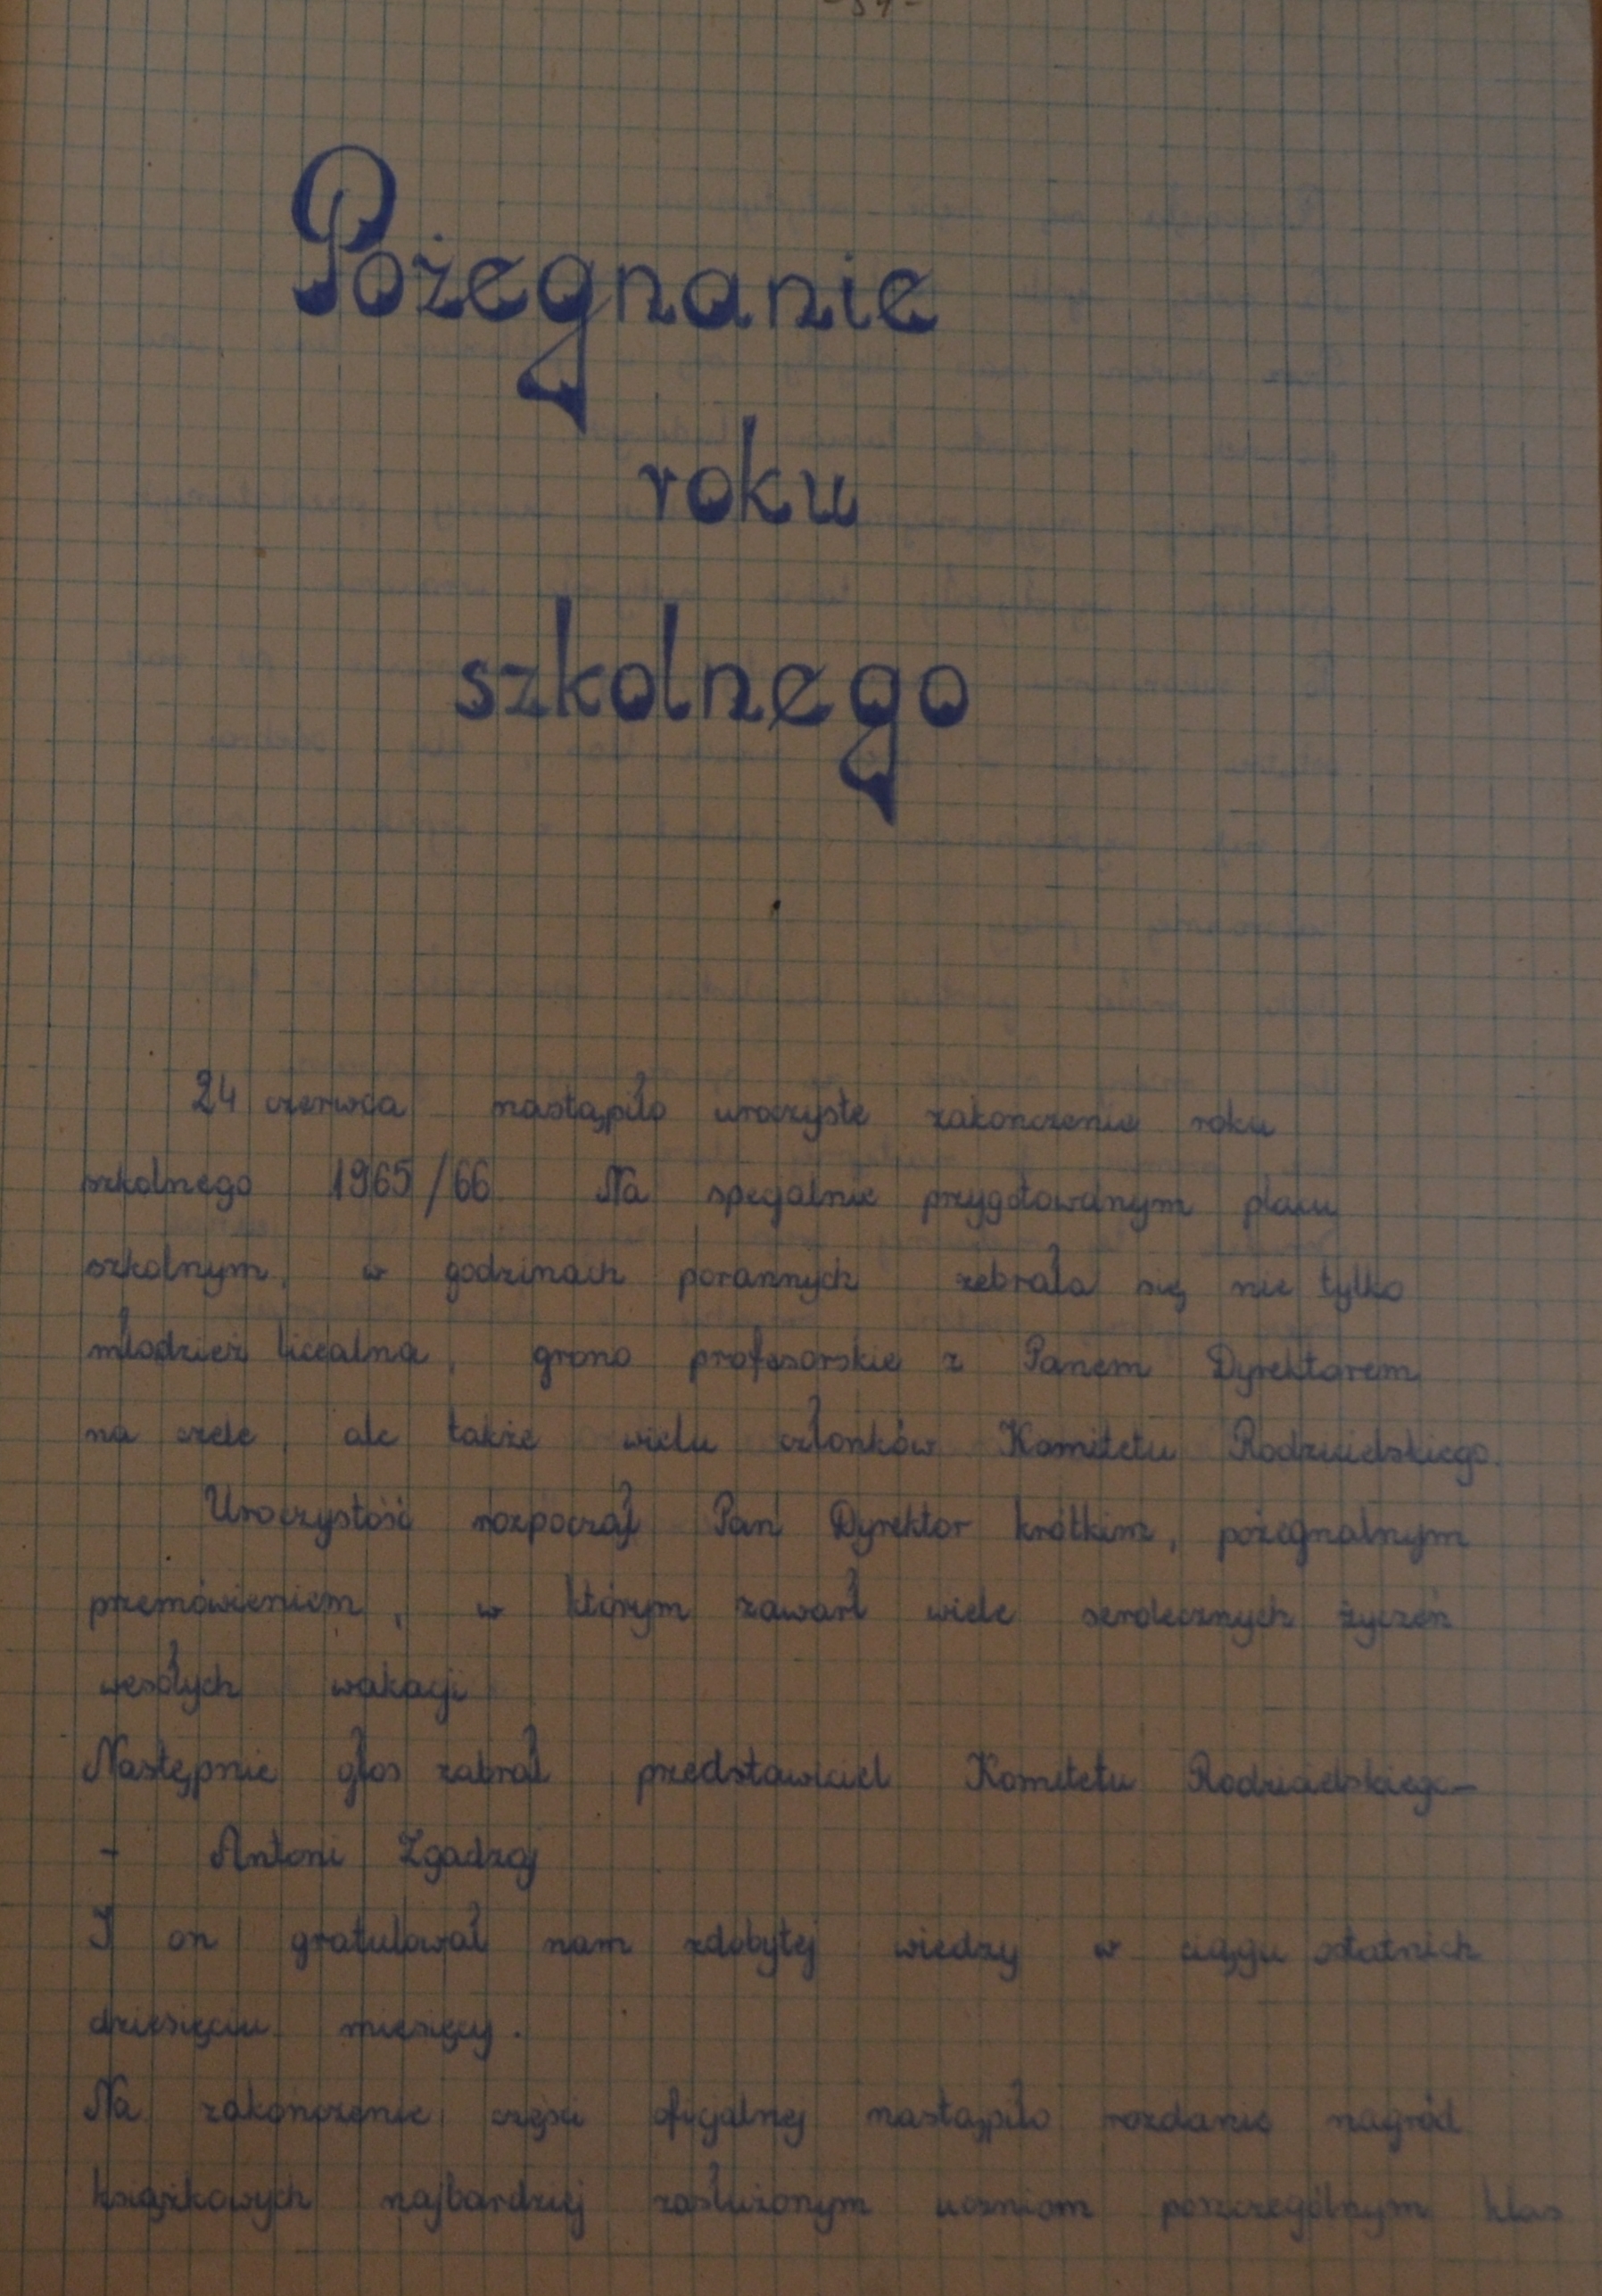 Pożegnanie
roku
szkolnego
24 czerwca nastąpiło uroczyste zakończenie roku
szkolnego 1965/66 Na specjalnie przygotowanym placu
szkolnym, w godzinach porannych zebrała się nie tylko
młodzież licealna, grono profesorskie z Panem Dyrektorem
na czele, ale także wielu członków Komitetu Rodzicielskiego.
Uroczystość rozpoczął Pan Dyrektor krótkim, pożegnalnym
przemówieniem, w którym zawarł wiele serdecznych życzeń
wesołych wakacji
Następnie głos zabrał przedstawiciel Komitetu Rodzicielskiego –
- Antoni Zgadzaj
I on gratulował nam zdobytej wiedzy w ciągu ostatnich
dziesięciu miesięcy.
Na zakończenie części oficjalnej nastąpiło rozdanie nagród
książkowych najbardziej zasłużonym uczniom poszczególnym klas